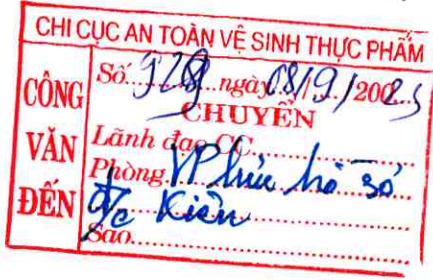 CHI CỤC AN TOÀN VỆ SINH THỰC PHẨM
CÔNG VĂN ĐẾN
Số 928 ngày 08/9/2025
CHUYỂN
Lãnh đạo CC
Phòng VP lưu hồ sơ
đ/c Kiên
Sao